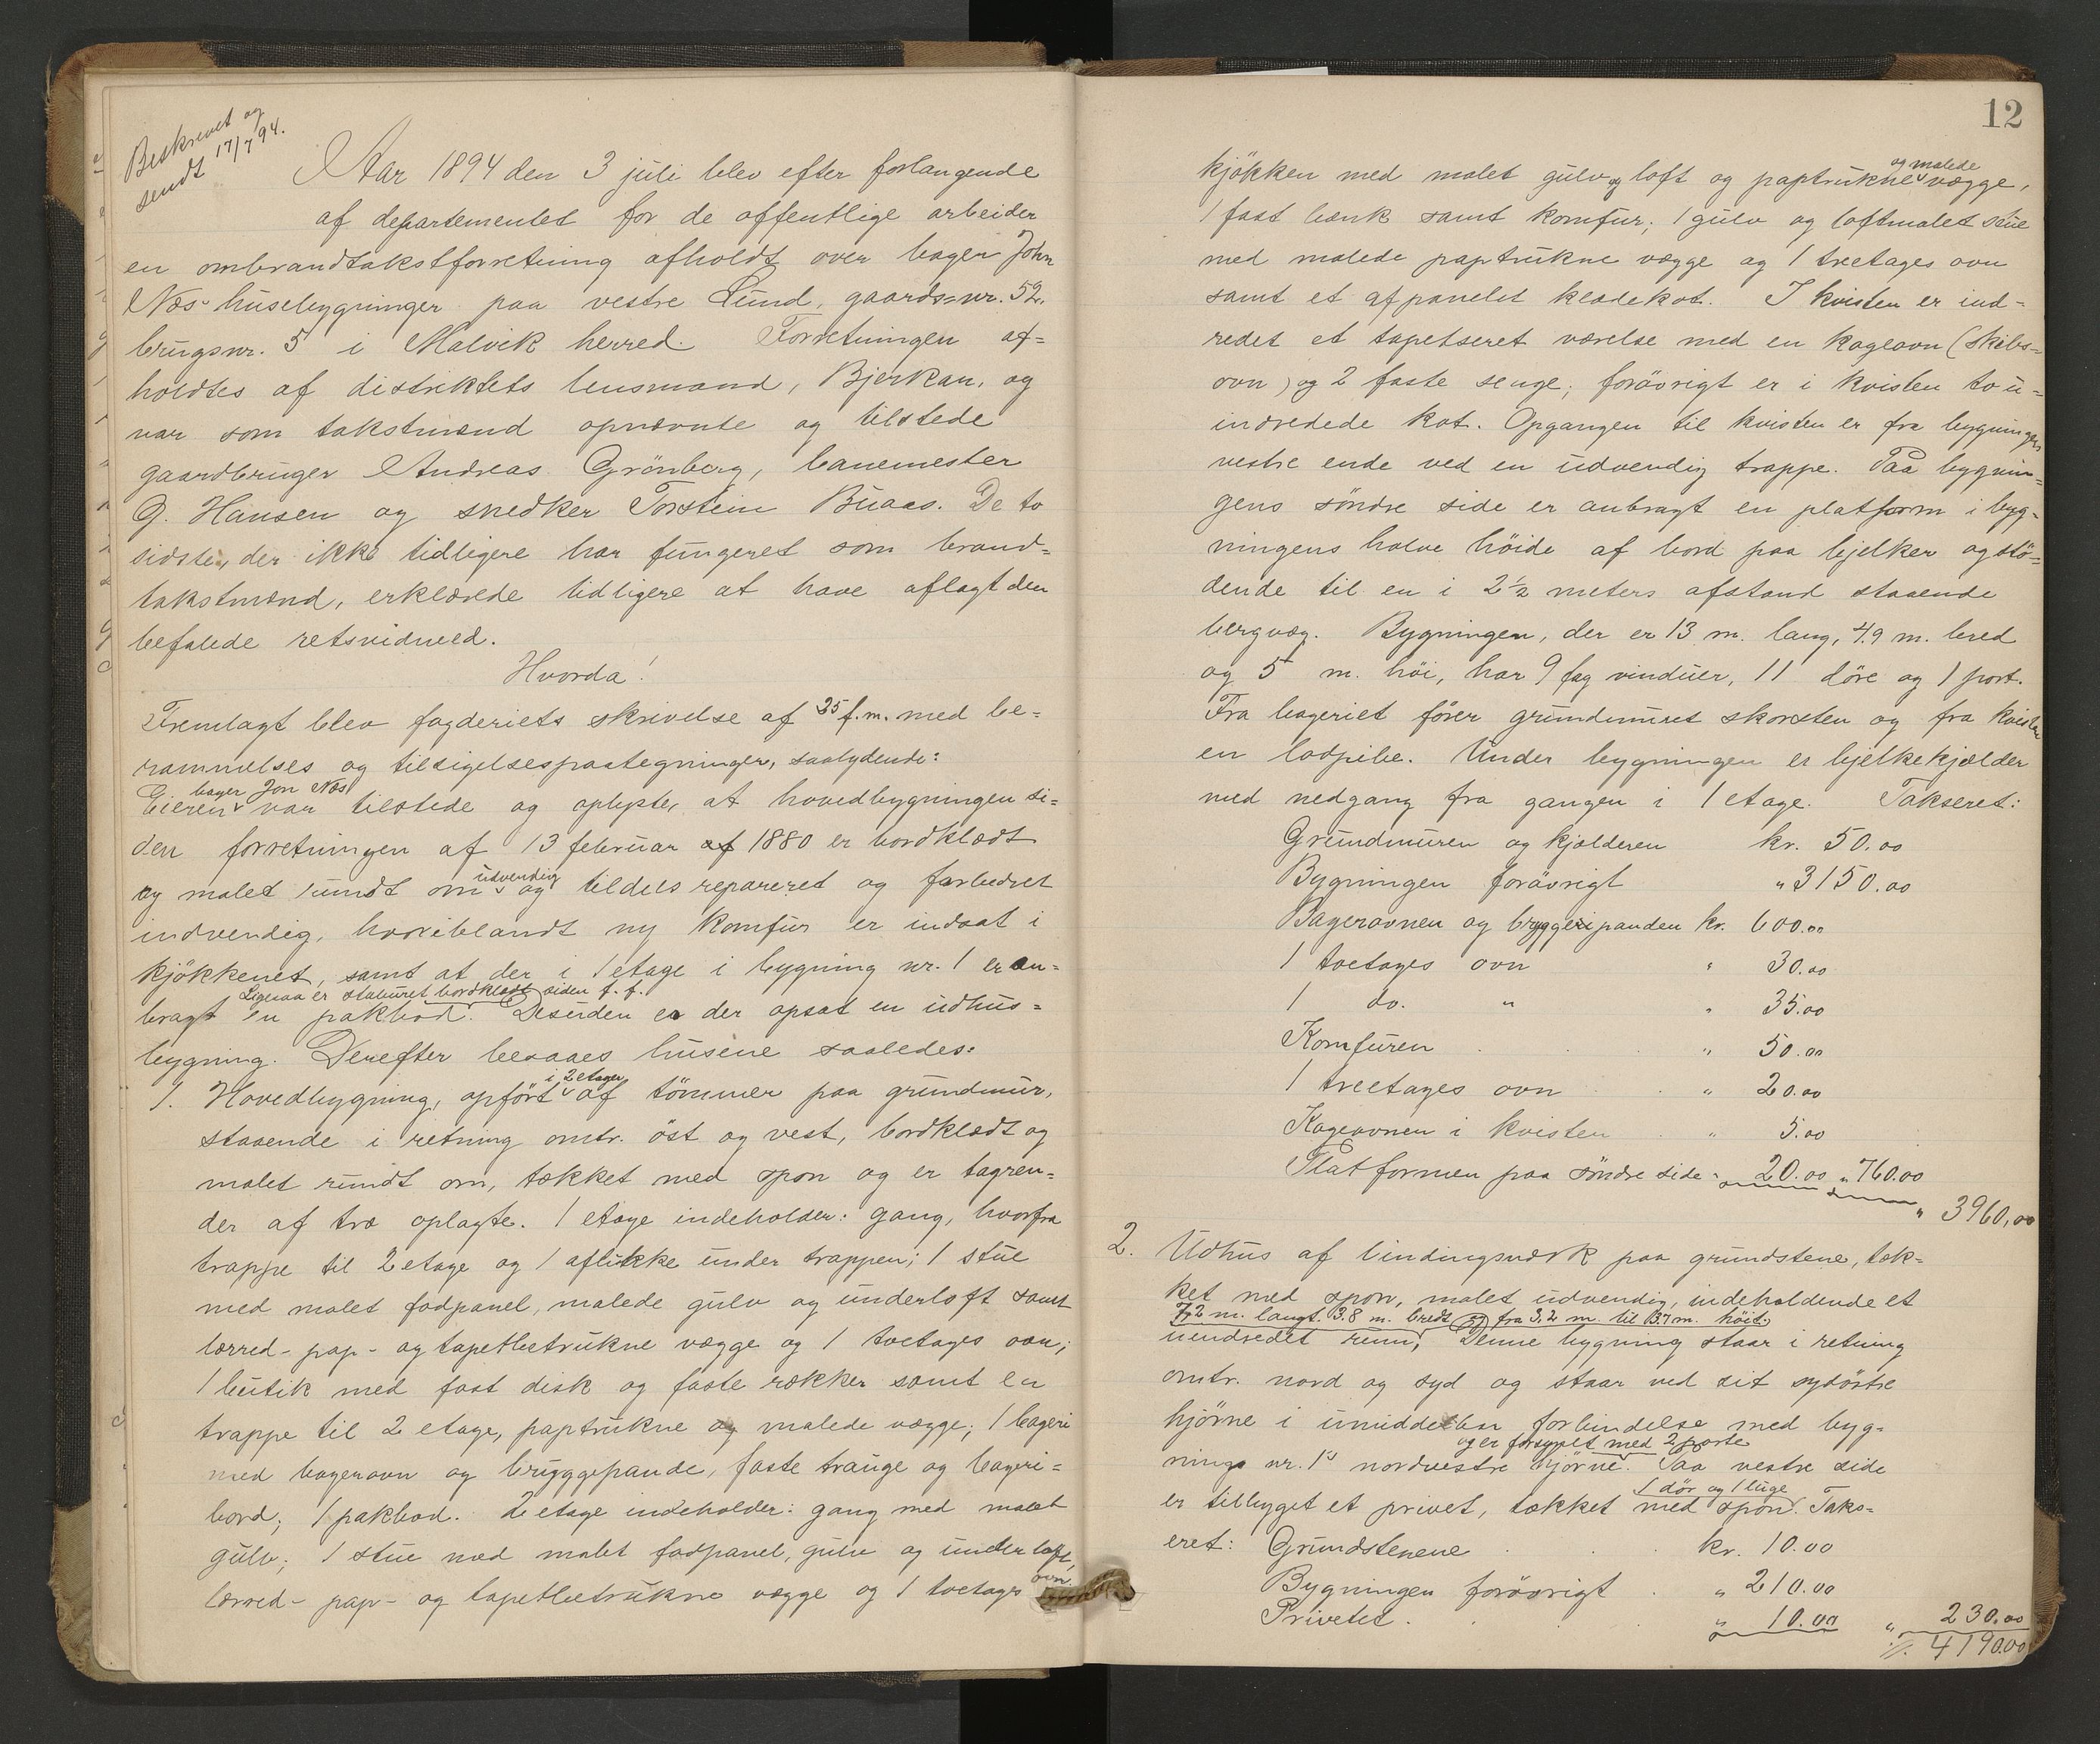 Beskrevet og
sendt 17/7 94.
Aar 1894 den 3 juli blev efter forlangende
af departementet for de offentlige arbeider
en ombrandtakstforretning afholdt over bager John
Næs' husebygninger paa vestre Lund, gaards=nr. 52.
brugsnr. 5 i Malvik herred. Forretningen af=
holdtes af distriktets lensmand, Bjerkan, og
var som takstmænd opnævnte og tilstede
gaardbruger Andreas Grönberg, banemester
G. Hansen og snedker Torstein Buaas. De to
sidste, der ikke tidligere har fungeret som brand=
takstmænd, erklærede tidligere at have aflagt den
befalede retsvidneed.
Hvorda!
Fremlagt blev fogderiets skrivelse af 25 f.m. med be=
rammelses og tilsigelsespaategninger, saalydende:
bager Jon Næs
Eieren var tilstede og oplyste, at hovedbygningen si=
den forretningen af 13 februar af 1880 er bordklædt
udvendig
og malet rundt om og tildels repareret og forbedret
indvendig, hvoriblandt ny komfur er indsat i
kjökkenet, samt at der i 1 etage i bygning nr. 1 er an=
Ligesaa er staburet bordklædt siden f. f.
bragt en pakbod. Desuden er der opsat en udhus=
bygning. Derefter besaaes husene saaledes:
i 2 etager
1. Hovedbygning, opfört af tömmer paa grundmur,
staaende i retning omtr. öst og vest, bordklædt og
malet rundt om, tækket med spon og er tagren=
der af træ oplagte. 1 etage indeholder: gang, hvorfra
trappe til 2 etage og 1 aflukke under trappen; 1 stue
med malet fodpanel, malede gulv og underloft samt
lærred- pap- og tapetbetrukne vægge og 1 toetages ovn;
1 butik med fast disk og faste rækker samt en
trappe til 2 etage, paptrukne og malede vægge; 1 bageri
med bagerovn og bryggepande, faste trauge og bageri=
bord; 1 pakbod. 2 etage indeholder: gang med malet
gulv; 1 stue med malet fodpanel, gulv og underloft,
lærred- pap- og tapetbetrukne vægge og 1 toetages
ovn.
12
og malede
kjökken med malet gulv og loft og paptrukne vægge,
1 fast bænk samt komfur; 1 gulv og loftmalet stue
med malede paptrukne vægge og 1 treetages ovn
samt et afpanelet klædekot. I kvisten er ind=
redet et tapetseret værelse med en kogeovn (skibs=
ovn) og 2 faste senge; forövrigt er i kvisten to u=
indredede kot. Opgangen til kvisten er fra bygningens
vestre ende ved en udvendig trappe. Paa bygnin=
gens söndre side er anbragt en platform i byg=
ningens halve höide af bord paa bjelker og stö=
dende til en i 2 1/2 meters afstand staaende
bergvæg. Bygningen, der er 13 m. lang, 4.9 m. bred
og 5 m. höi, har 9 fag vinduer, 11 döre og 1 port.
Fra bageriet förer grundmuret skorsten og fra kvisten
en lodpibe. Under bygningen er bjelkekjælder
med nedgang fra gangen i 1 etage. Takseret:
Grundmuren og kjælderen kr. 50.00
Bygningen forövrigt " 3150.00
Bagerovnen og bryggeripanden kr. 600.00
1 toetages ovn " 30.00
1 do. " " 35.00
Komfuren " 50.00
1 treetages ovn " 20.00
Kogeovnen i kvisten " 5.00
Platformen paa söndre side " 20.00 " 760.00
" 3960,00
2. Udhus af bindingsværk paa grundstene, tæk=
ket med spon, malet udvendig, indeholdende et
7,2 m. langt. 3.8 m. bredt og fra 3,2 m. til 3.7 m. höit.
uindredet rum. Denne bygning staar i retning
omtr. nord og syd og staar ved sit sydöstre
hjörne i umiddelbar forbindelse med byg=
og er forsynet med 2 porte
nings nr. 1's nordvestre hjörne. Paa vestre side
1 dör og 1 luge
er tilbygget et privet, tækket med spon. Taks=
eret: Grundstenene kr. 10.00
Bygningen forövrigt " 210.00
Privetet " 10.00 " 230.00
4190.00